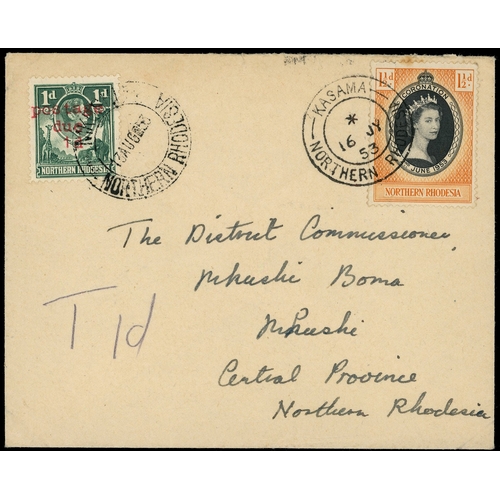 1d 1d
postage
due
1d
NORTHERN RHODESIA
AUG
NORTHERN RHODESIA
KASAMA
*
16 JY
53
NORTHERN
1½d. 1½d.
CORONATION
2 JUNE 1953
NORTHERN RHODESIA
The District Commissioner,
Mkushi Boma
Mkushi
Central Province
Northern Rhodesia
T 1d